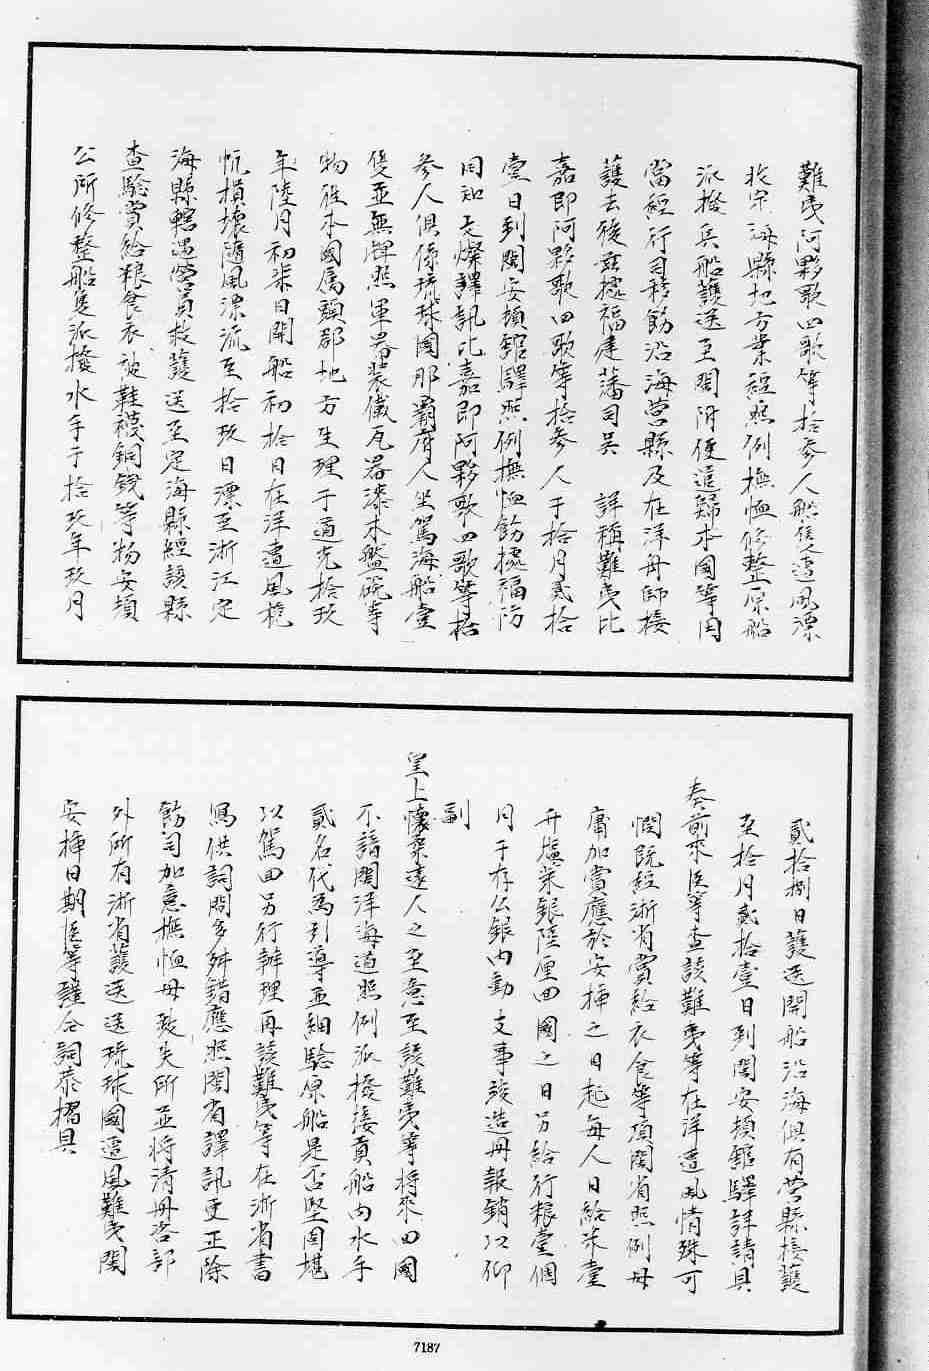 難夷阿夥歌四歌等拾參人船隻遭風漂
收定海縣地方業經照例撫恤修整原船
派撥兵船護送至閩附便遣歸本國等因
當經行司移飭沿海營縣及在洋舟師接
護去後茲據福建藩司吳　詳稱難夷比
嘉即阿夥歌四歌等拾參人于拾月貳拾
壹日到閩安頓館驛照例撫恤飭據福防
同知尤燦譯訊比嘉即阿夥歌四歌等拾
參人俱係琉球國那霸府人坐駕海船壹
隻並無牌照軍器裝儎瓦器漆木盤碗等
物往本國馬頭郡地方生理于道光拾玖
年陸月初柒日開船初拾日在洋遭風桅
帆損壞隨風漂流至拾玖日漂至浙江定
海縣轄遇營員救護送至定海縣經該縣
查驗賞給粮食衣被鞋襪銅錢等物安頓
公所修整船隻派撥水手于拾玖年玖月
貳拾捌日護送開船沿海俱有營縣接護
至拾月貳拾壹日到閩安頓館驛詳請具
奏前來臣等查該難夷等在洋遭風情殊可
憫既經浙省賞給衣食等項閩省照例毋
庸加賞應於安插之日起每人日給米壹
升塩菜銀陸厘回國之日另給行粮壹個
月于存公銀內動支事竣造冊報銷以仰
副
皇上懷柔遠人之至意至該難夷等將來回國
不諳閩洋海道照例派撥接貢船內水手
貳名代為引導並細驗原船是否堅固堪
以駕回另行辦理再該難夷等在浙省書
寫供詞間多舛錯應照閩省譯訊更正除
飭司加意撫恤毋致失所並將清冊咨部
外所有浙省護送送琉球國遭風難夷閩
安插日期臣等謹合詞恭摺具
7187